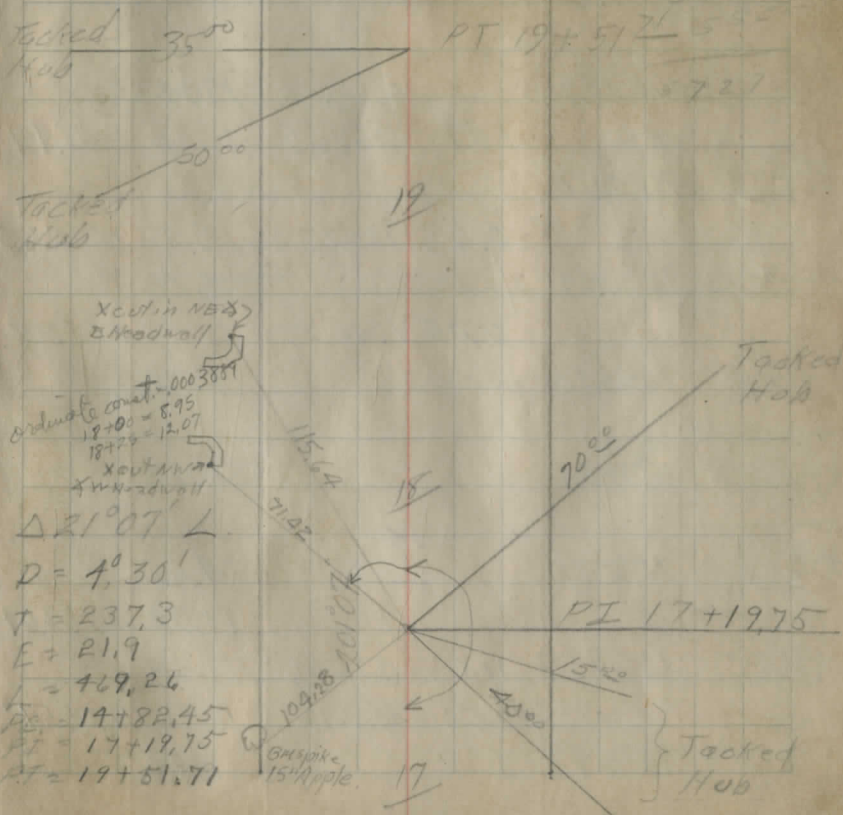 Tacked
Hub
35⁰⁰
PT 19+51 71
721
50⁰⁰
Tacked
Hub
19
X cut in NE
E Headwall
Ordinate const. = .0003889
18+00 = 8.95
18+25 = 12.07
X cut NW
W Headwall
115.64
71.42
18
70⁰⁰
Tacked
Hub
Δ 21°07' L
D = 4°30'
T = 237.3
E = 21.9
L = 469.26
PC = 14+82.45
PI = 17+19.75
PT = 19+51.71
201°07'
PI 17+19.75
15⁰⁰
40⁰⁰
104.28
GM spike
15" Apple
17
Tacked
Hub